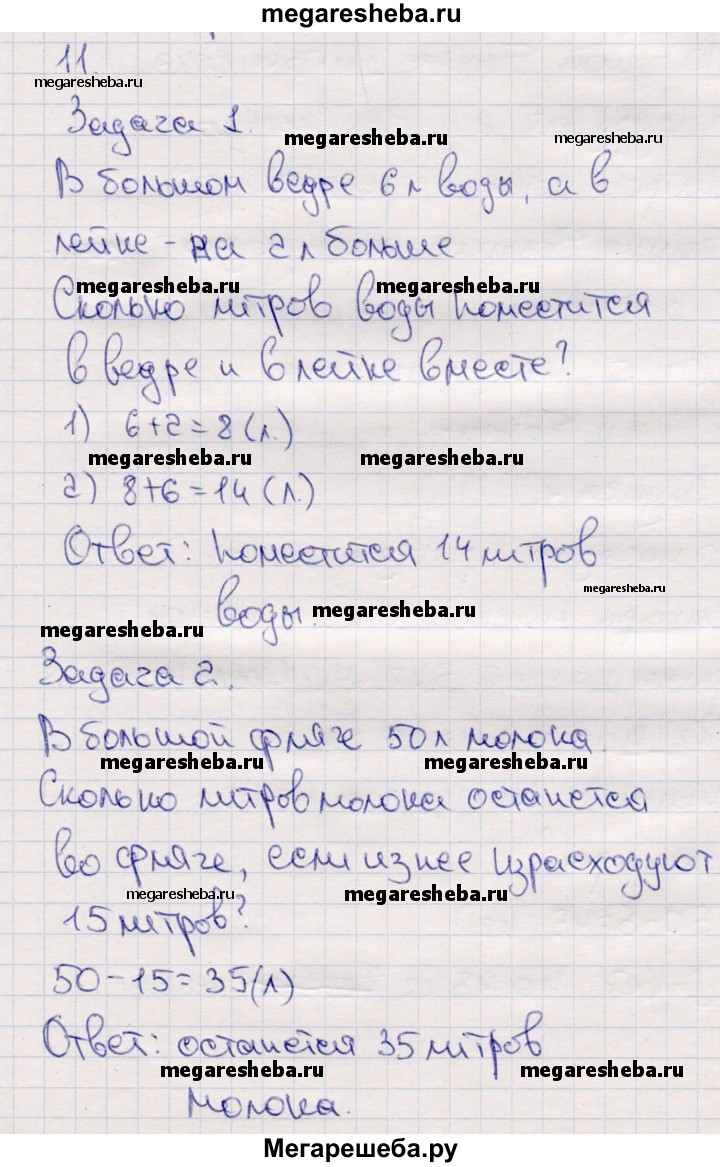 megaresheba.ru
11.
megaresheba.ru
Задача 1.
megaresheba.ru megaresheba.ru
В большом ведре 6 л воды, а в
лейке - на 2 л больше
megaresheba.ru megaresheba.ru
Сколько литров воды поместится
в ведре и в лейке вместе?
1) 6+2=8 (л.)
megaresheba.ru megaresheba.ru
2) 8+6=14 (л.)
Ответ: поместится 14 литров
megaresheba.ru
воды. megaresheba.ru
megaresheba.ru
Задача 2.
В большой фляге 50 л молока.
megaresheba.ru megaresheba.ru
Сколько литров молока останется
во фляге, если из нее израсходуют
megaresheba.ru megaresheba.ru
15 литров?
50-15=35(л)
Ответ: останется 35 литров
megaresheba.ru megaresheba.ru
молока.
Мегарешеба.ру